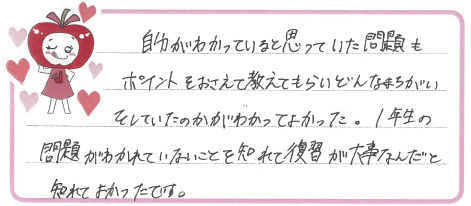 自分がわかっていると思っていた問題も
ポイントをおさえて教えてもらいどんなまちがい
をしていたのかがわかってよかった。1年生の
問題がわかれていないことを知れて復習が大事なんだと
知れてよかったです。